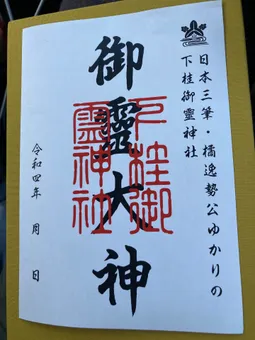 日本三筆・橘逸勢公ゆかりの
下桂御靈神社
御靈大神
下桂御
靈神社
令和四年　月　日